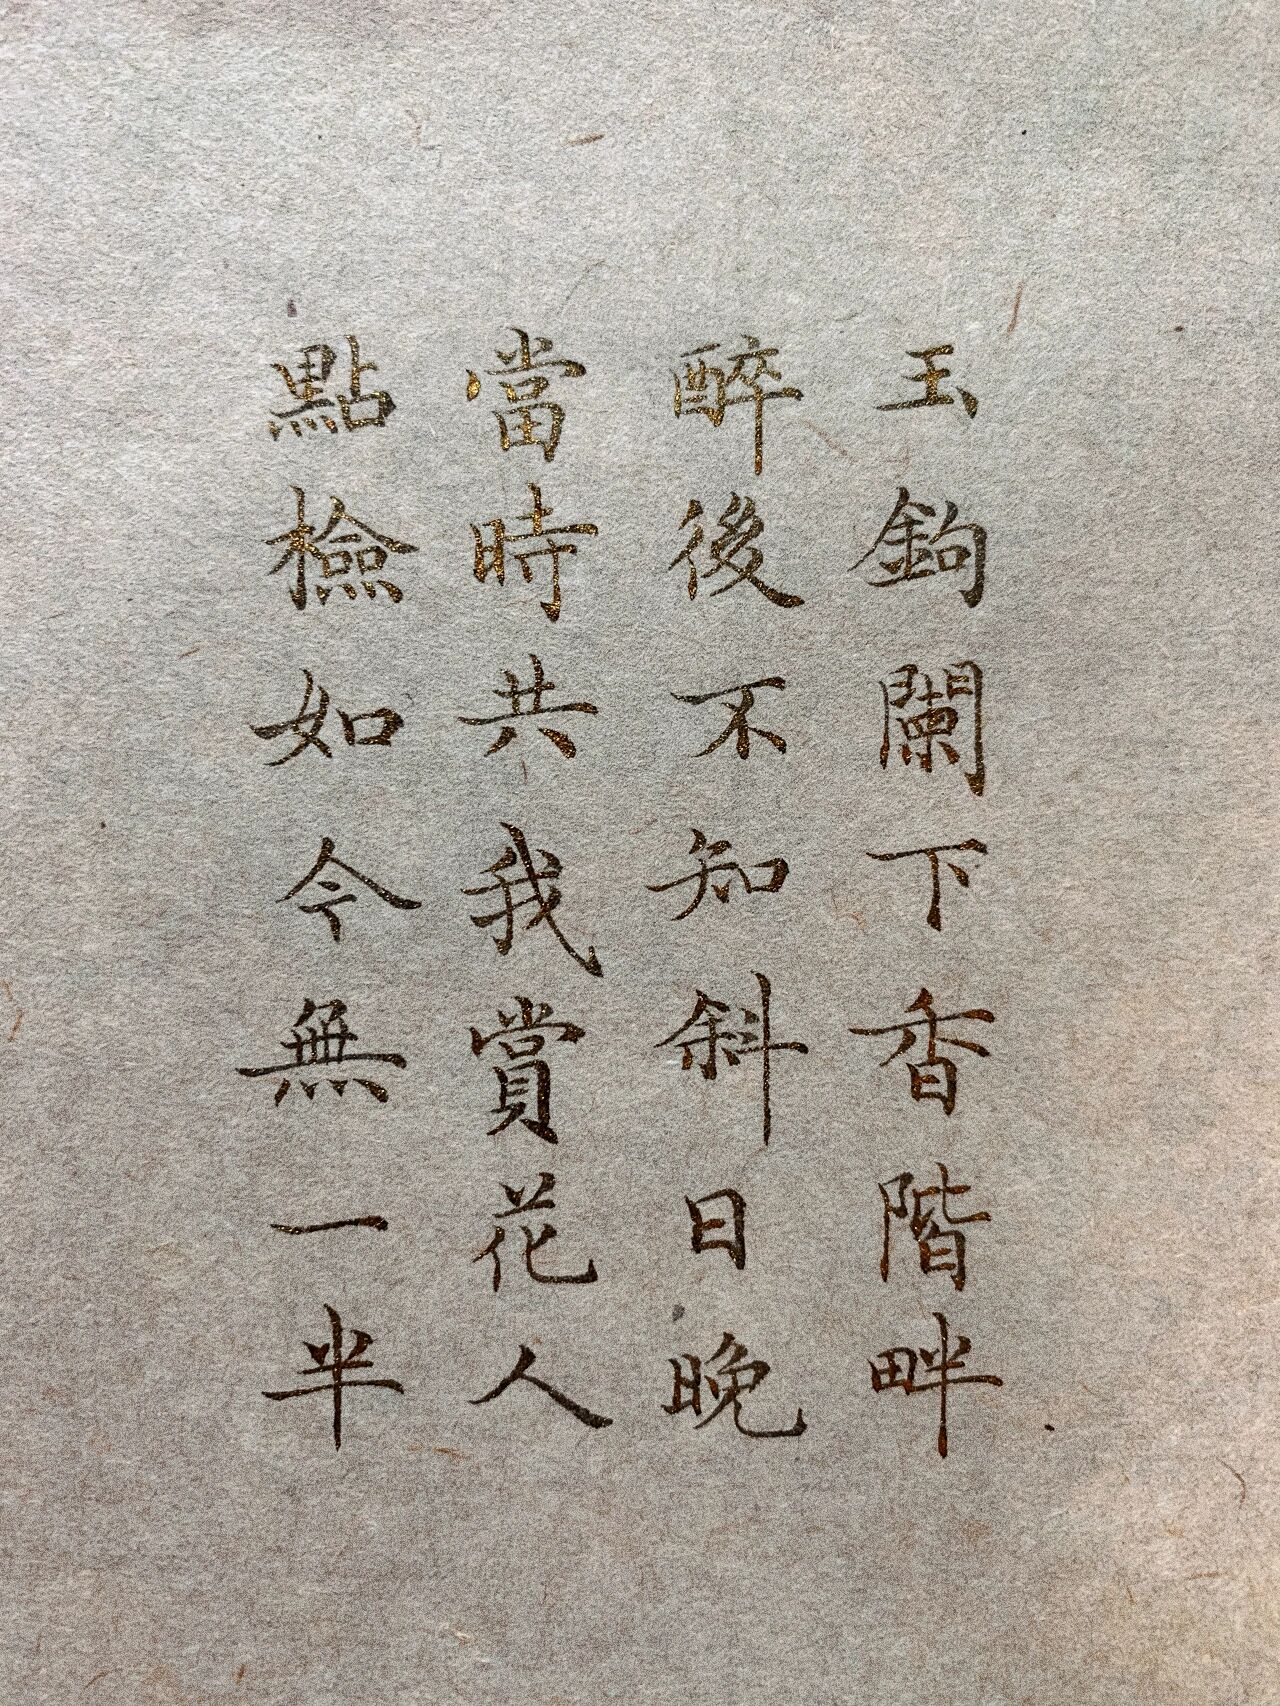 玉鉤闌下香階畔
醉後不知斜日晚
當時共我賞花人
點檢如今無一半